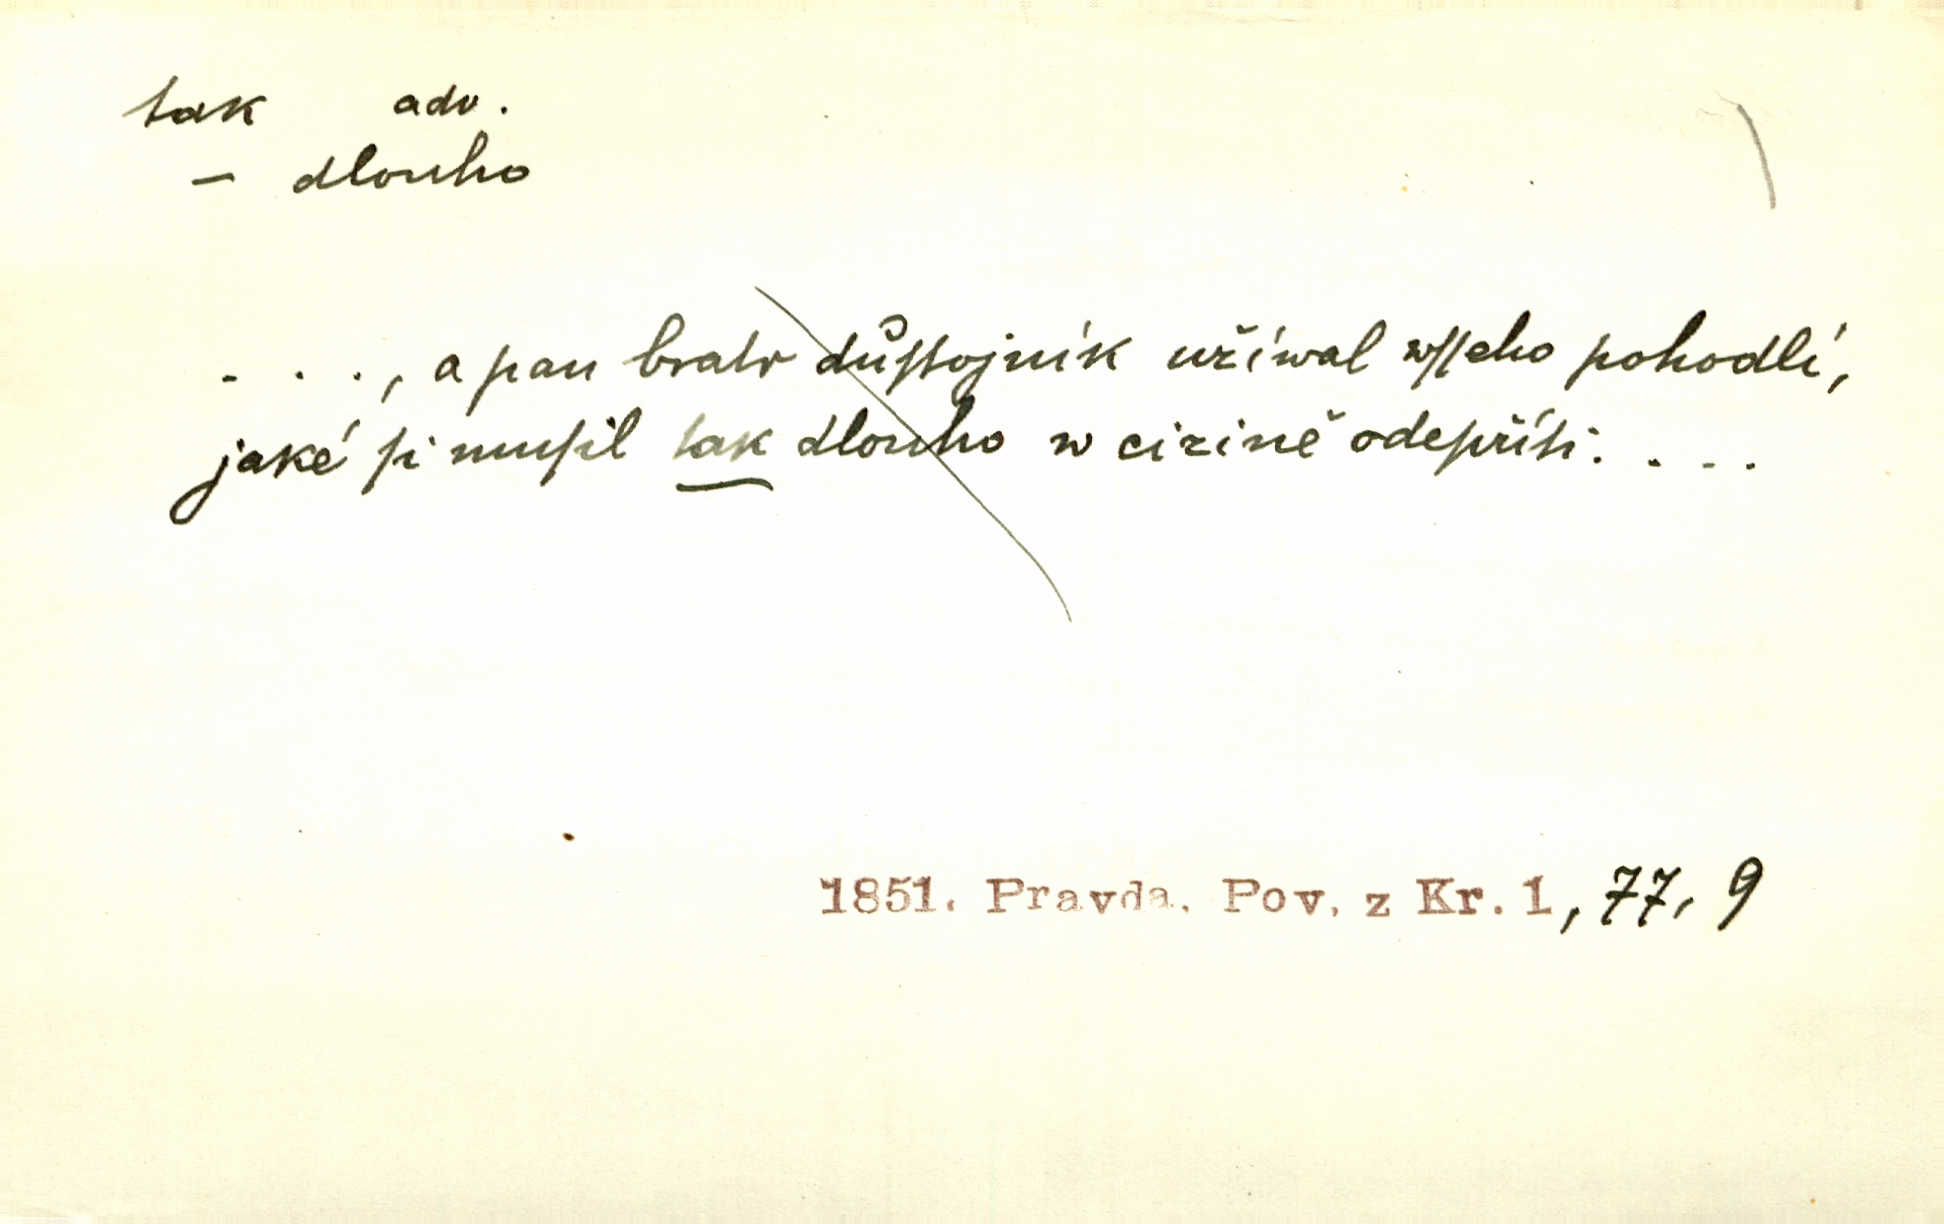 tak adv.
– dlouho
. . ., a pan bratr důſtojník užíwal wſſeho pohodlí,
jaké ſi muſil tak dlouho w cizině odepříti: . . .
1851. Pravda. Pov. z Kr. 1, 77, 9